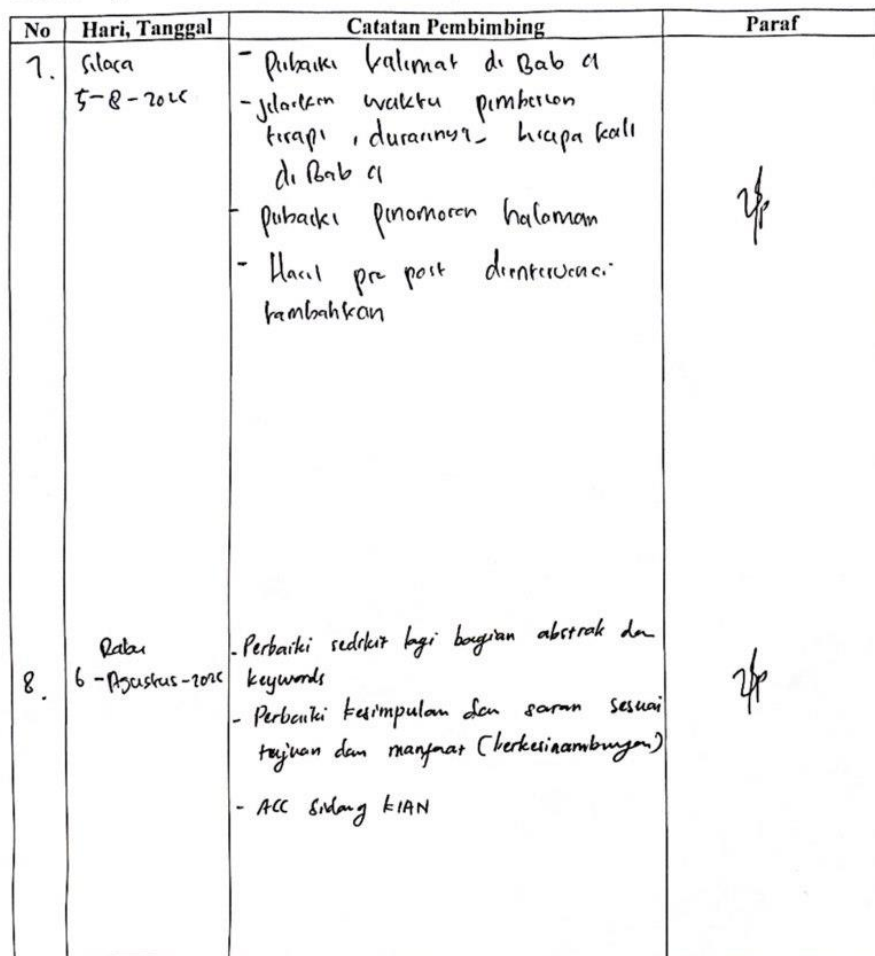 No Hari, Tanggal Catatan Pembimbing Paraf
7. Selasa - Perbaiki kalimat di Bab 4
5-8-2025 - jelaskan waktu pemberian
terapi, durasinya, berapa kali
di Bab 4
- perbaiki penomoran halaman
- Hasil pre post diintervensi
tambahkan
8. Rabu - Perbaiki sedikit lagi bagian abstrak dan
6-Agustus-2025 keywords
- Perbaiki kesimpulan dan saran sesuai
tujuan dan manfaat (berkesinambungan)
- ACC Sidang KIAN